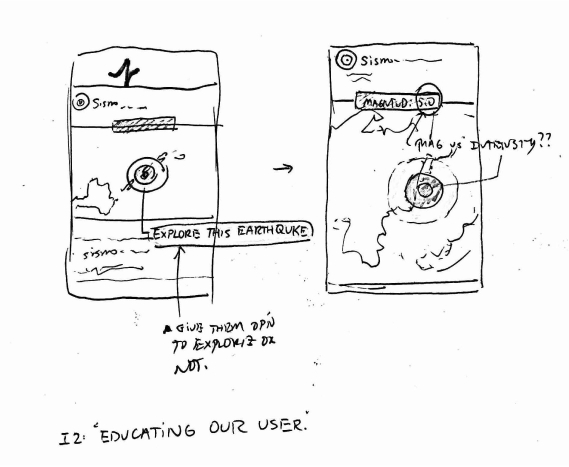 Sismo
EXPLORE THIS EARTHQUKE
sismo
GIVE THEM OPN
TO EXPLORE OR
NOT.
Sismo
MAGNITUD: 5.0
MAG vs INTENSTY??
I2: "EDUCATING OUR USER."